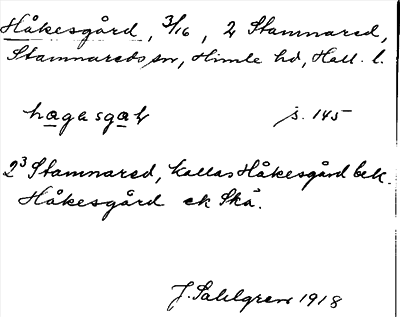 Håkesgård, 3/16, 2 Stamnared,
Stamnareds sn, Himle hd, Hall. l.
hagasgaɫ s. 145
2³ Stamnared, kallas Håkesgård bek.
Håkesgård ek Skå.
J. Sahlgren 1918